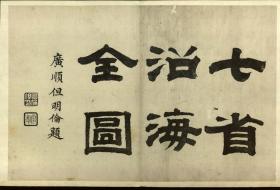 七省
沿海
全圖
廣順但明倫題